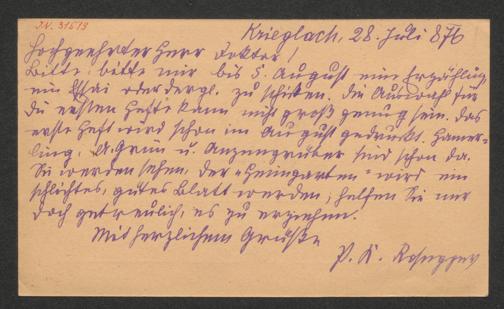 J.N. 31513
Krieglach, 28. Juli 876
Hochgeehrter Herr Doktor!
Bitte, bitte mir bis 5. August eine Erzählung
ein Essai oder dergl. zu schicken. Die Auswahl für
die ersten Hefte kann nicht groß genug sein. Das
erste Heft wird schon im August gedruckt. Hamer-
ling, A. Grün u. Anzengruber sind schon da.
Sie werden sehen, der "Heimgarten" wird ein
schlichtes, gutes Blatt werden, helfen Sie nur
doch getreulich, es zu erziehen.
Mit herzlichem Gruße
P. K. Rosegger